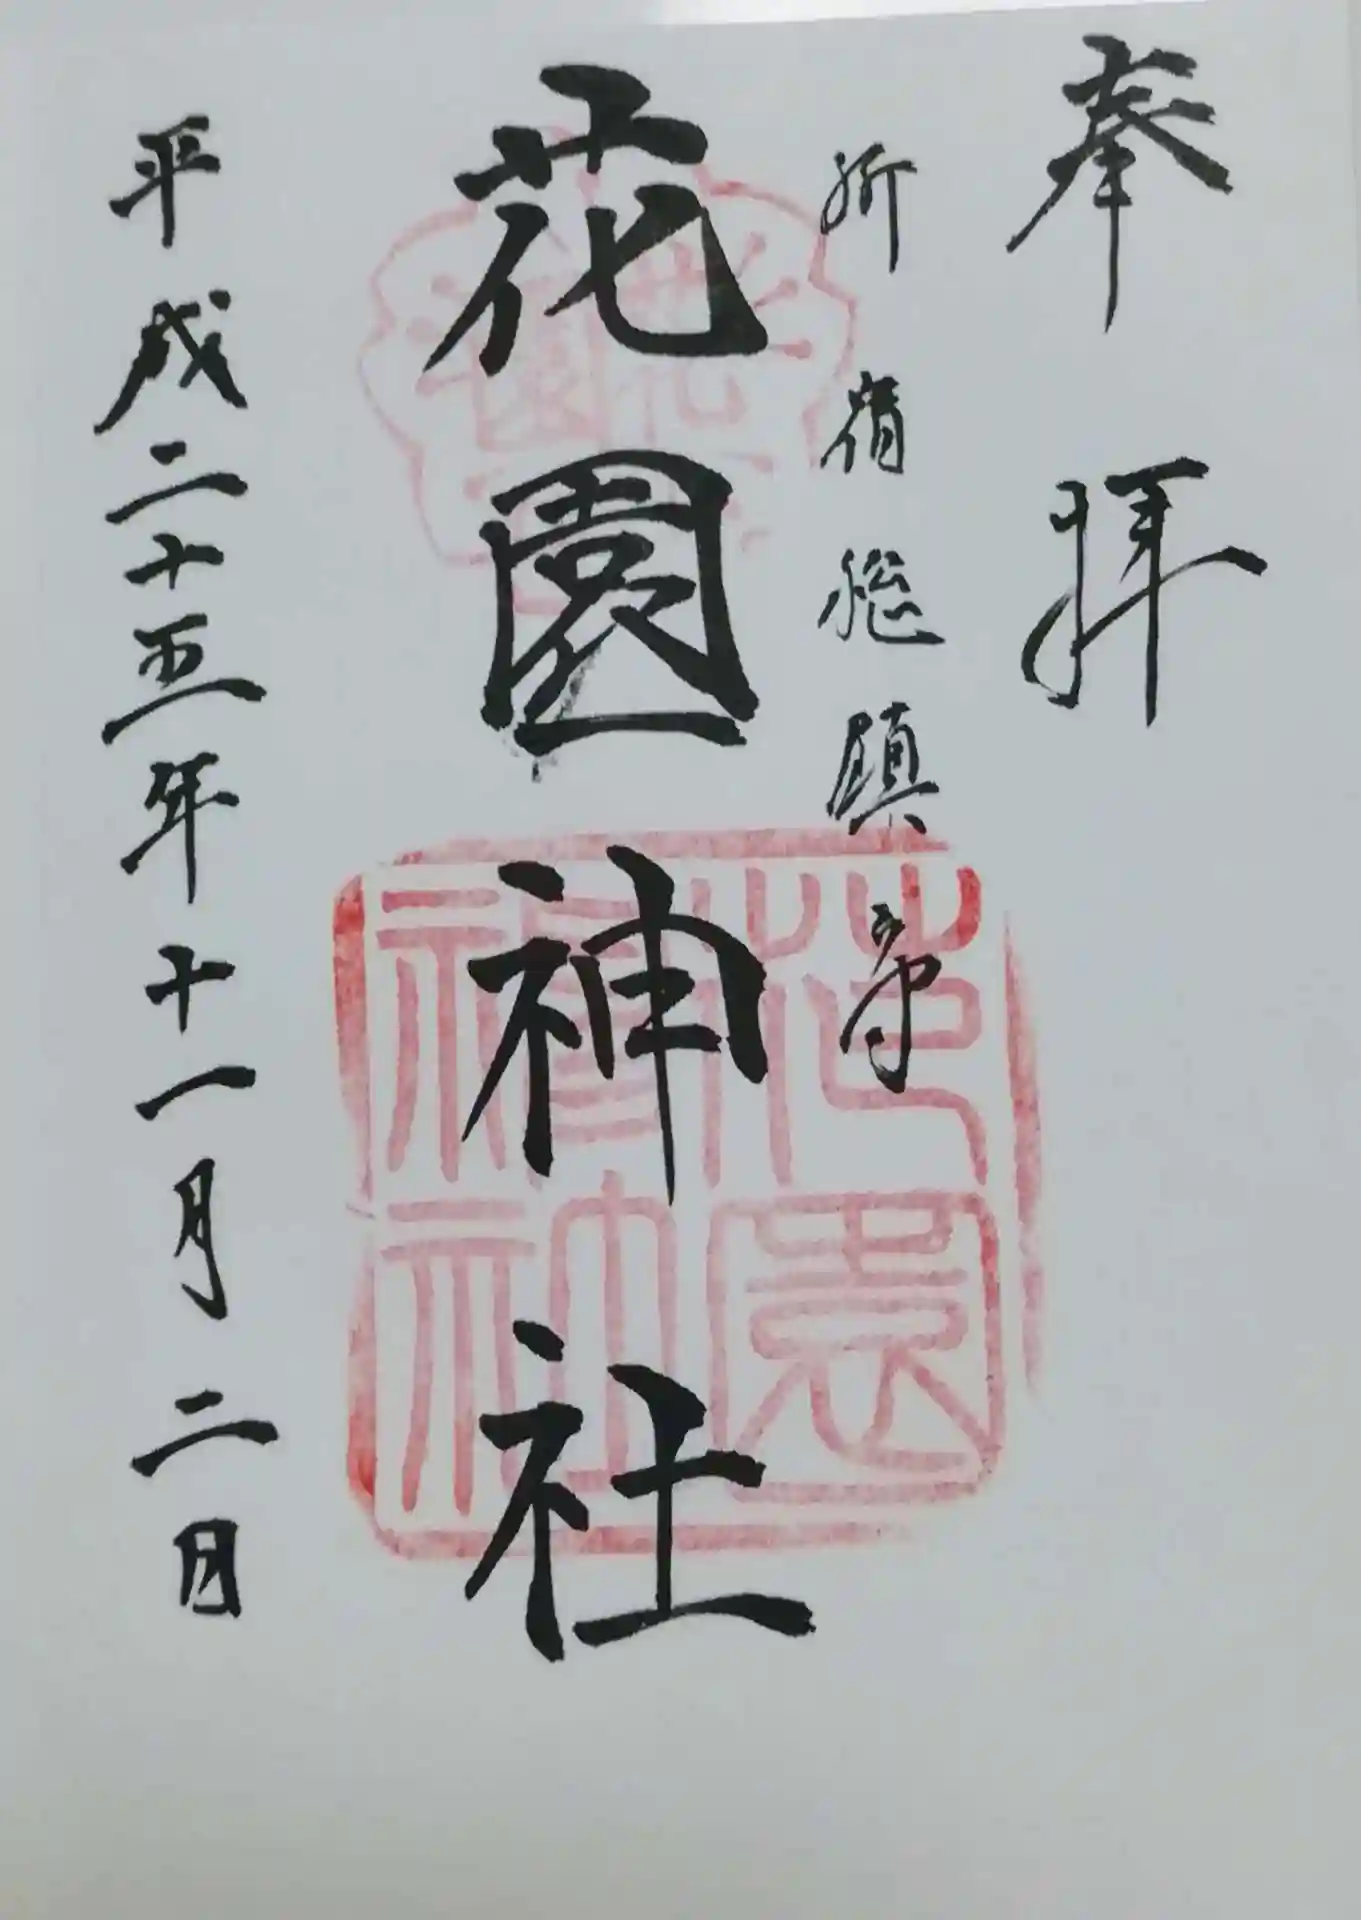 奉拝
新宿総鎮守
花園神社
平成二十五年十一月二日
花園
花園神社